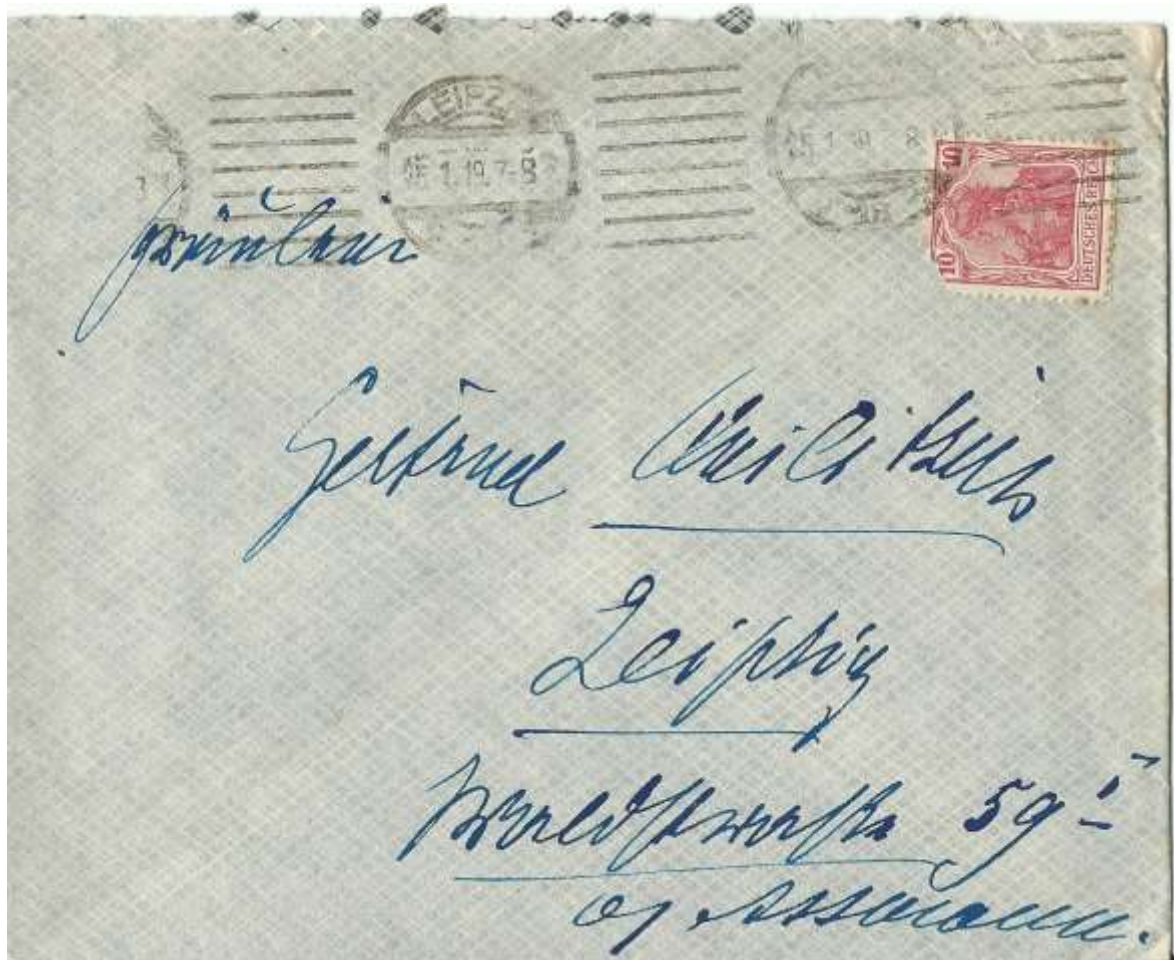 LEIPZ
15.1.19. 7-8
10 10
DEUTSCHES REICH
Fräulein
Gertrud
Leipzig
Waldstraße 59 I
Assmann.